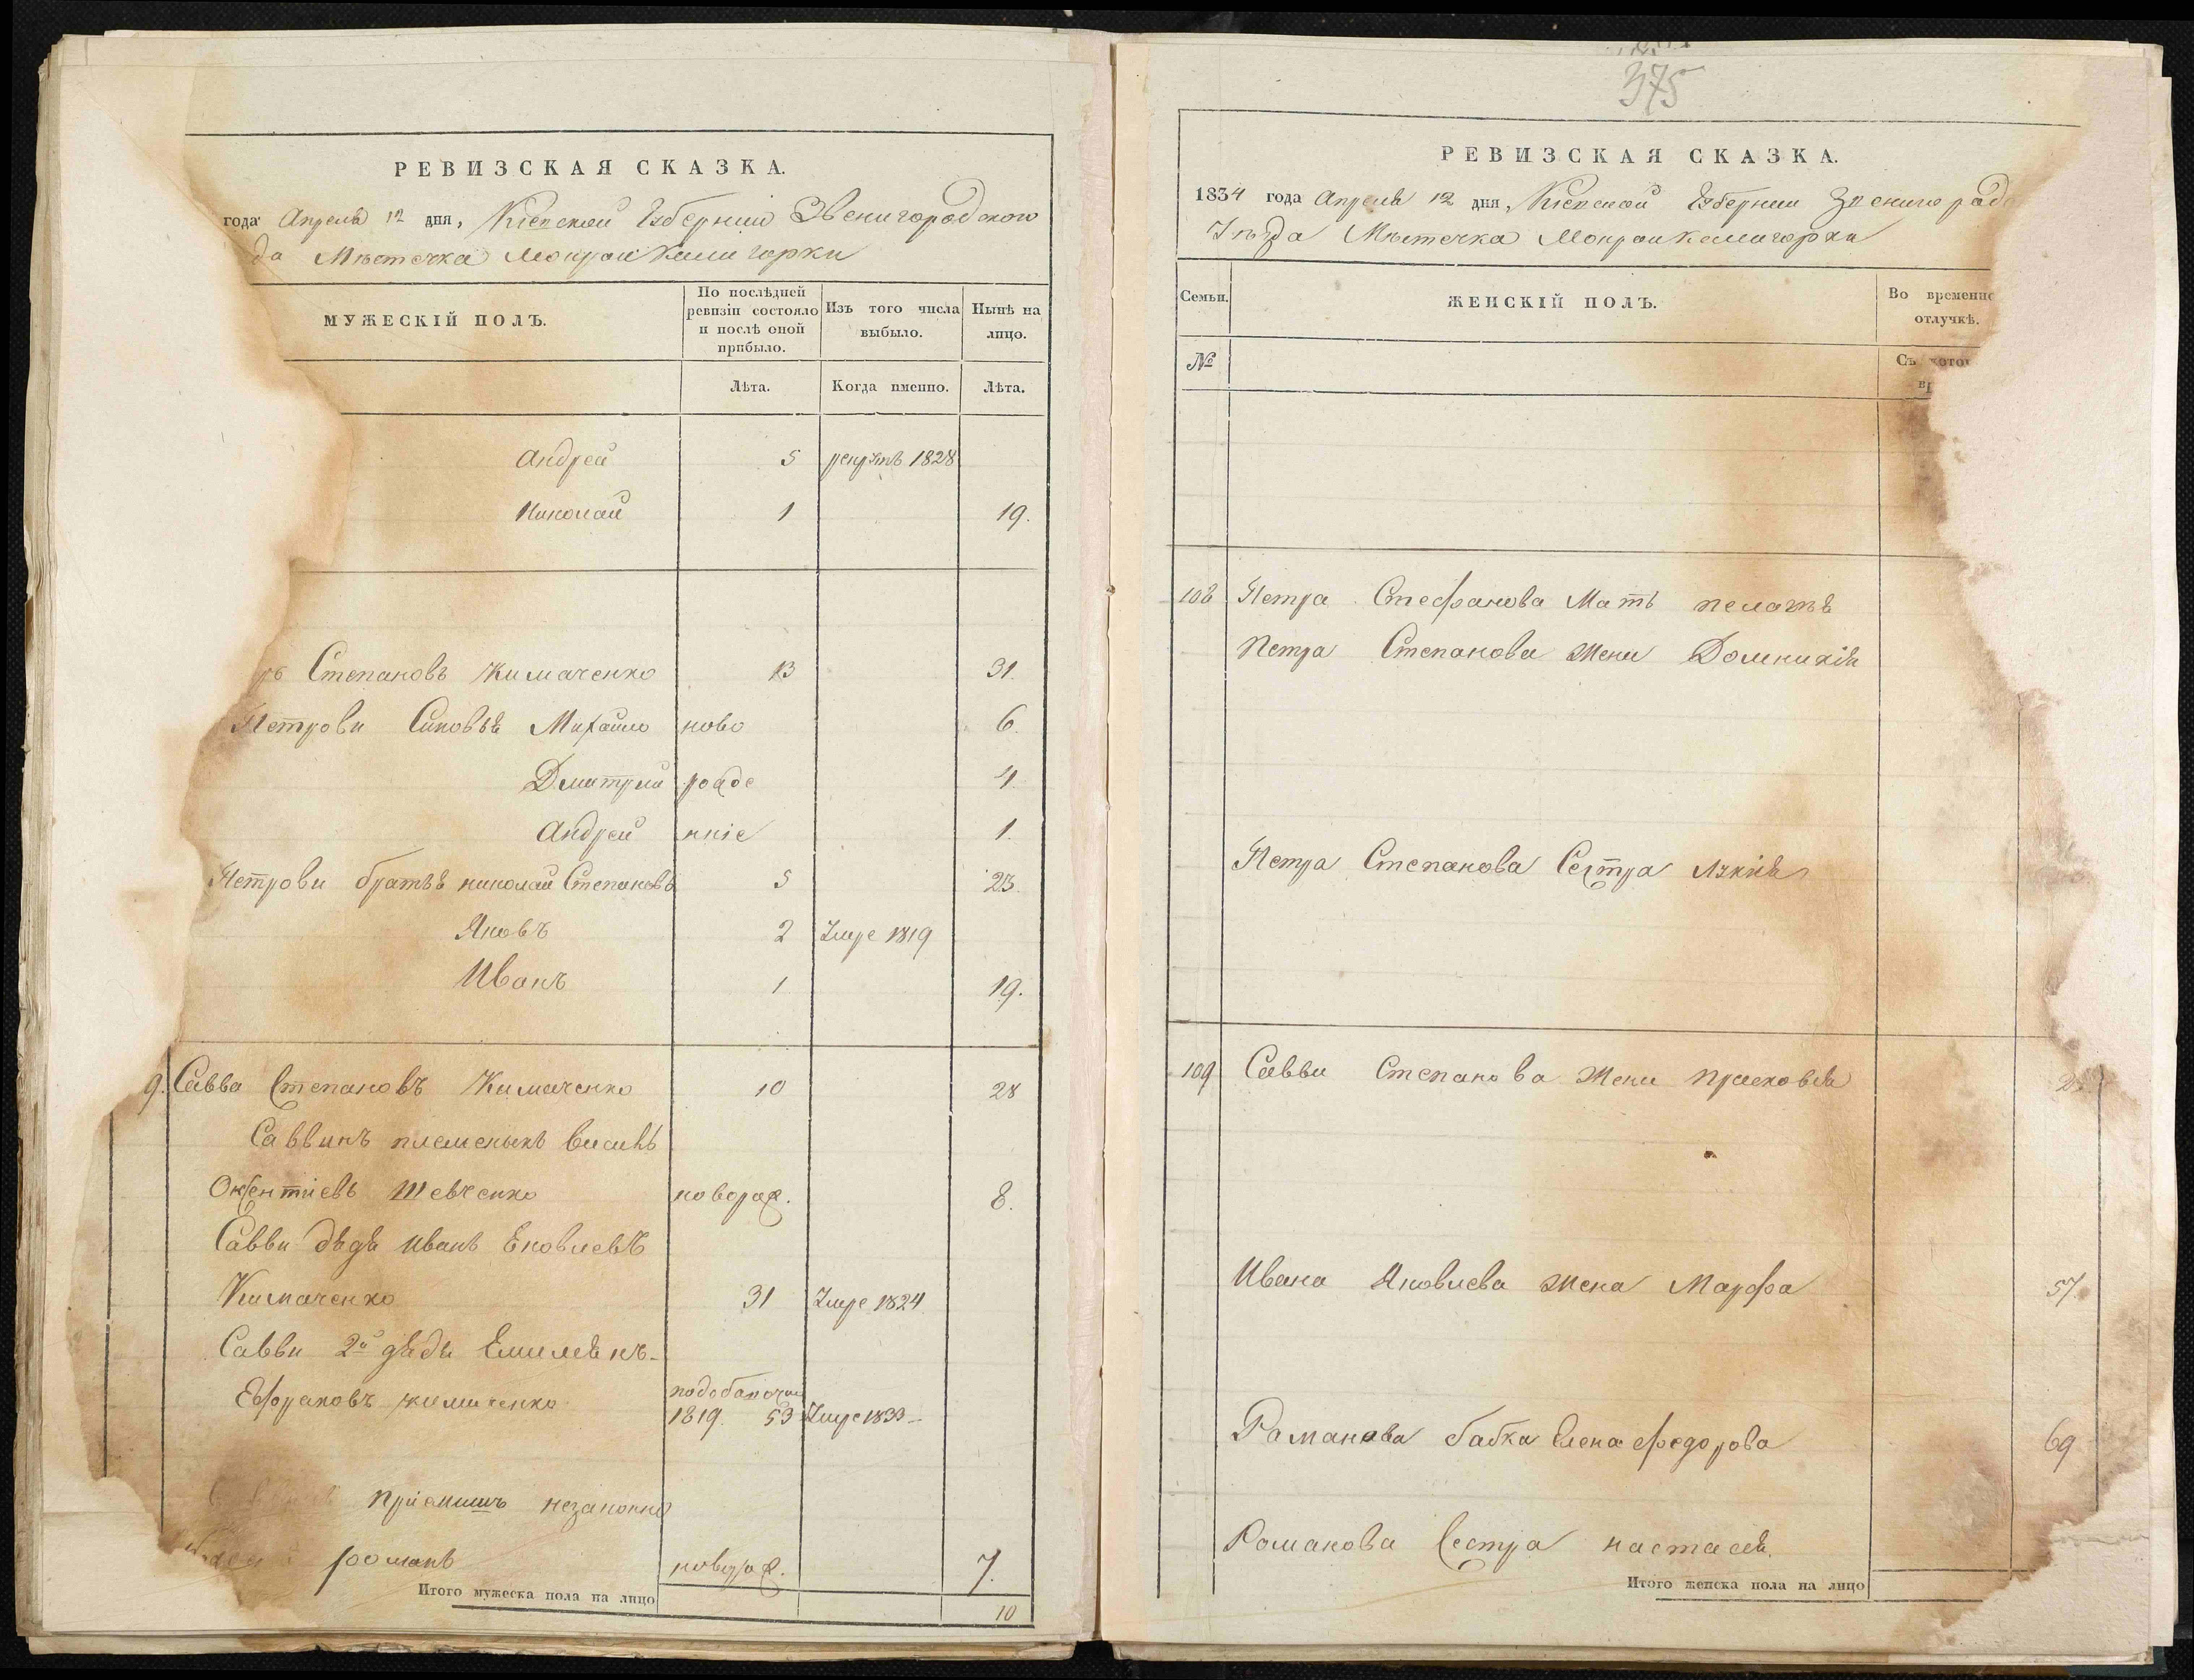 РЕВИЗСКАЯ СКАЗКА.
года Апреля 12 дня, Кіевской Губерніи Звенигородского
да Мѣстечка Мокрой Калигорки
МУЖЕСКІЙ ПОЛЪ.
По послѣдней ревизіи состояло и послѣ оной прибыло.
Изъ того числа выбыло.
Нынѣ на лицо.
Лѣта.
Когда именно.
Лѣта.
Андрей 5 рекрутъ 1828
Николай 1 19.
ръ Степановъ Кимаченко 13 31.
Петрови Синовья Михайло ново 6.
Дмитрий рожде 4.
Андрей нніе 1.
Петрови братья николай Степановъ 5 23.
Яковъ 2 Умре 1819
Иванъ 1 19.
9. Савва Степановъ Кимаченко 10 28
Саввинъ племеныкъ
Шевченко новорож. 8.
Савви дядя иванъ Яковлевъ
Кимаченко 31 Умре 1824
Савви 2й дядя Емилянъ
Кимаченко 1819. 53 Умре 1833
приемишъ незаконно
романъ новорож. 7.
Итого мужеска пола на лицо
10
375
РЕВИЗСКАЯ СКАЗКА.
1834 года Апреля 12 дня, Кіевской Губернии Звенигород
Уѣзда Мѣстечка Мокрой Калигорки
Семьи.
ЖЕНСКІЙ ПОЛЪ.
Во временно
отлучкѣ.
№
Съ котор
вр
108 Петра Стефанова Мать пелагия
Петра Степанова Жена Домникія
Петра Степанова Сестра
109 Савви Степанова Жена прасковия
Ивана Яковлева Жена Марфа 57.
Романова бабка Елена Федорова 69
Романова Сестра настасия.
Итого женска пола на лицо